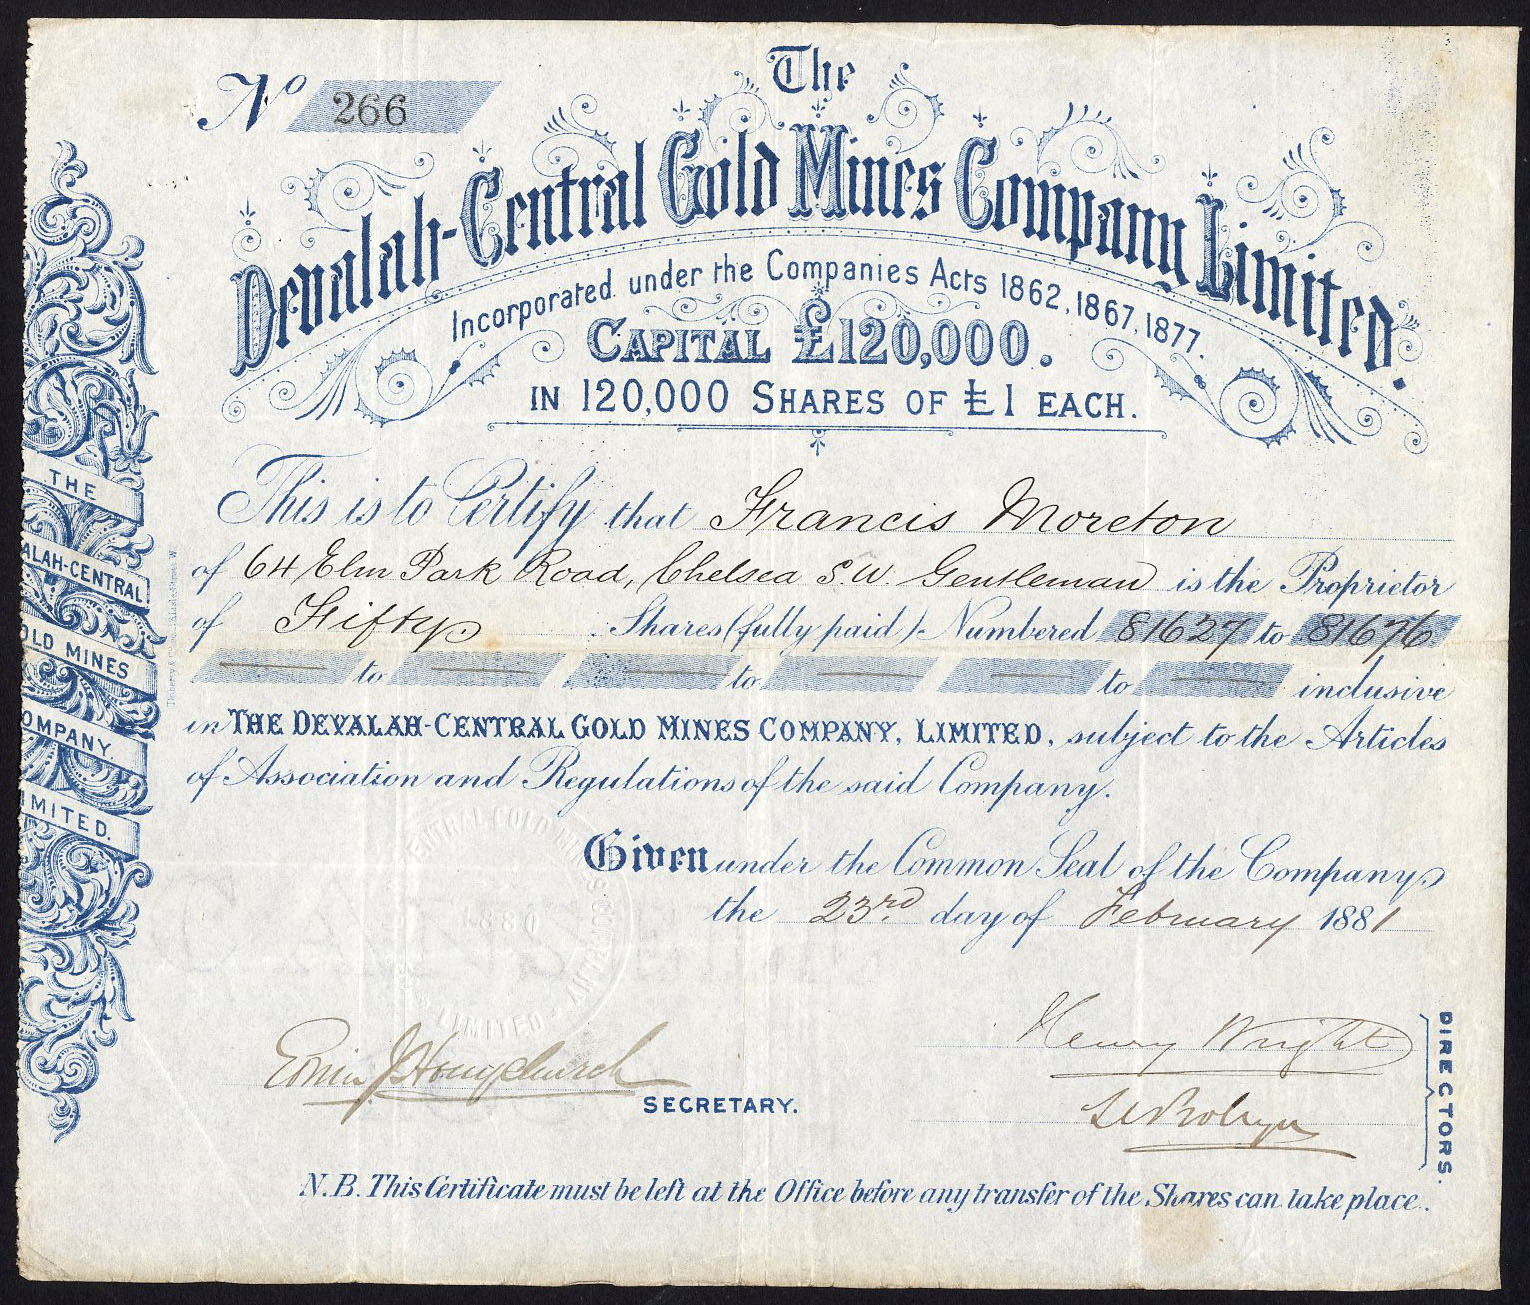 No 266
The
Devalah-Central Gold Mines Company Limited.
Incorporated under the Companies Acts 1862, 1867, 1877.
CAPITAL £120,000.
IN 120,000 SHARES OF £1 EACH.
THE
ALAH-CENTRAL
OLD MINES
OMPANY
IMITED.
This is to Certify that Francis Moreton
of 64 Elm Park Road, Chelsea S.W. Gentleman is the Proprietor
of Fifty Shares (fully paid) Numbered 81627 to 81676
to to to inclusive
in THE DEVALAH-CENTRAL GOLD MINES COMPANY, LIMITED, subject to the Articles
of Association and Regulations of the said Company.
Given under the Common Seal of the Company,
the 23rd day of February 1881
CENTRAL GOLD MINES COMPANY
LIMITED
Henry Wright
SECRETARY.
DIRECTORS.
N.B. This Certificate must be left at the Office before any transfer of the Shares can take place.